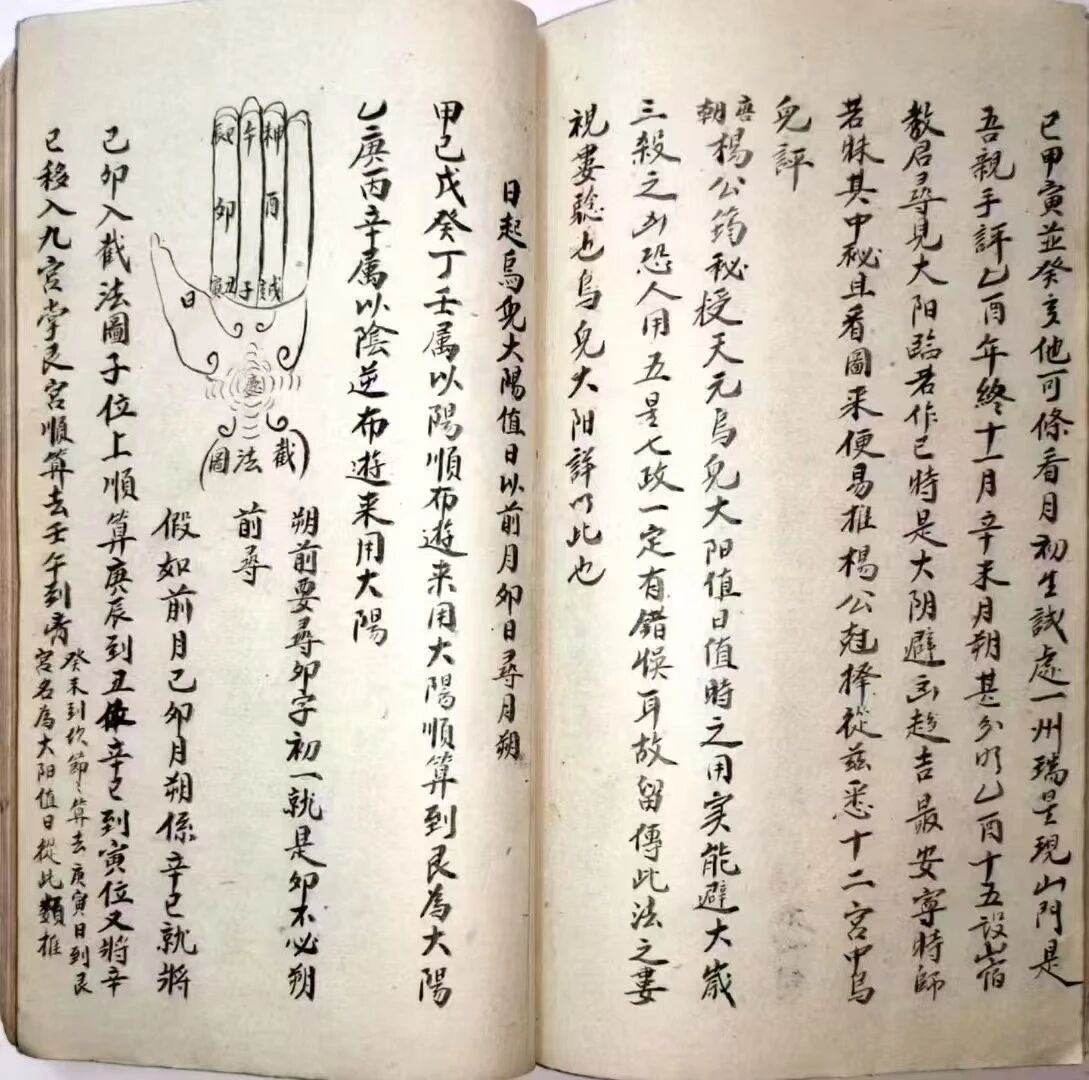 已甲寅並癸亥他可條看月初生試處一州瑞星現山門是
吾親手評乙酉年終十一月辛未月朔甚分明乙酉十五設
教君尋見大阳臨君作已時是大阴避凶趨吉最安寧時師
若昧其中秘且看圖来便易推楊公尅擇從兹悉十二宮中烏
兔評
唐朝楊公筠秘授天元烏兔大阳值日值時之用实能避大歲
三殺之凶恐人用五星七政一定有錯悮耳故留傳此法之婁
視婁聡也烏兔大阳詳以此也
日起烏兔大陽值日以前月卯日尋月朔
甲己戊癸丁壬属以陽順布遊来用大陽順算到艮為大陽
乙庚丙辛属以陰逆布遊来用大陽
辰 午 神
卯 酉
寅 丑 子 誠
日
截法圖
朔前要尋卯字初一就是卯不必朔
前尋
假如前月己卯月朔係辛巳就將
己卯入截法圖子位上順算庚辰到丑位辛巳到寅位又將辛
巳移入九宮掌艮宮順算去壬午到离
癸未到坎節〻算去庚寅日到艮
宮名為大阳值日從此類推